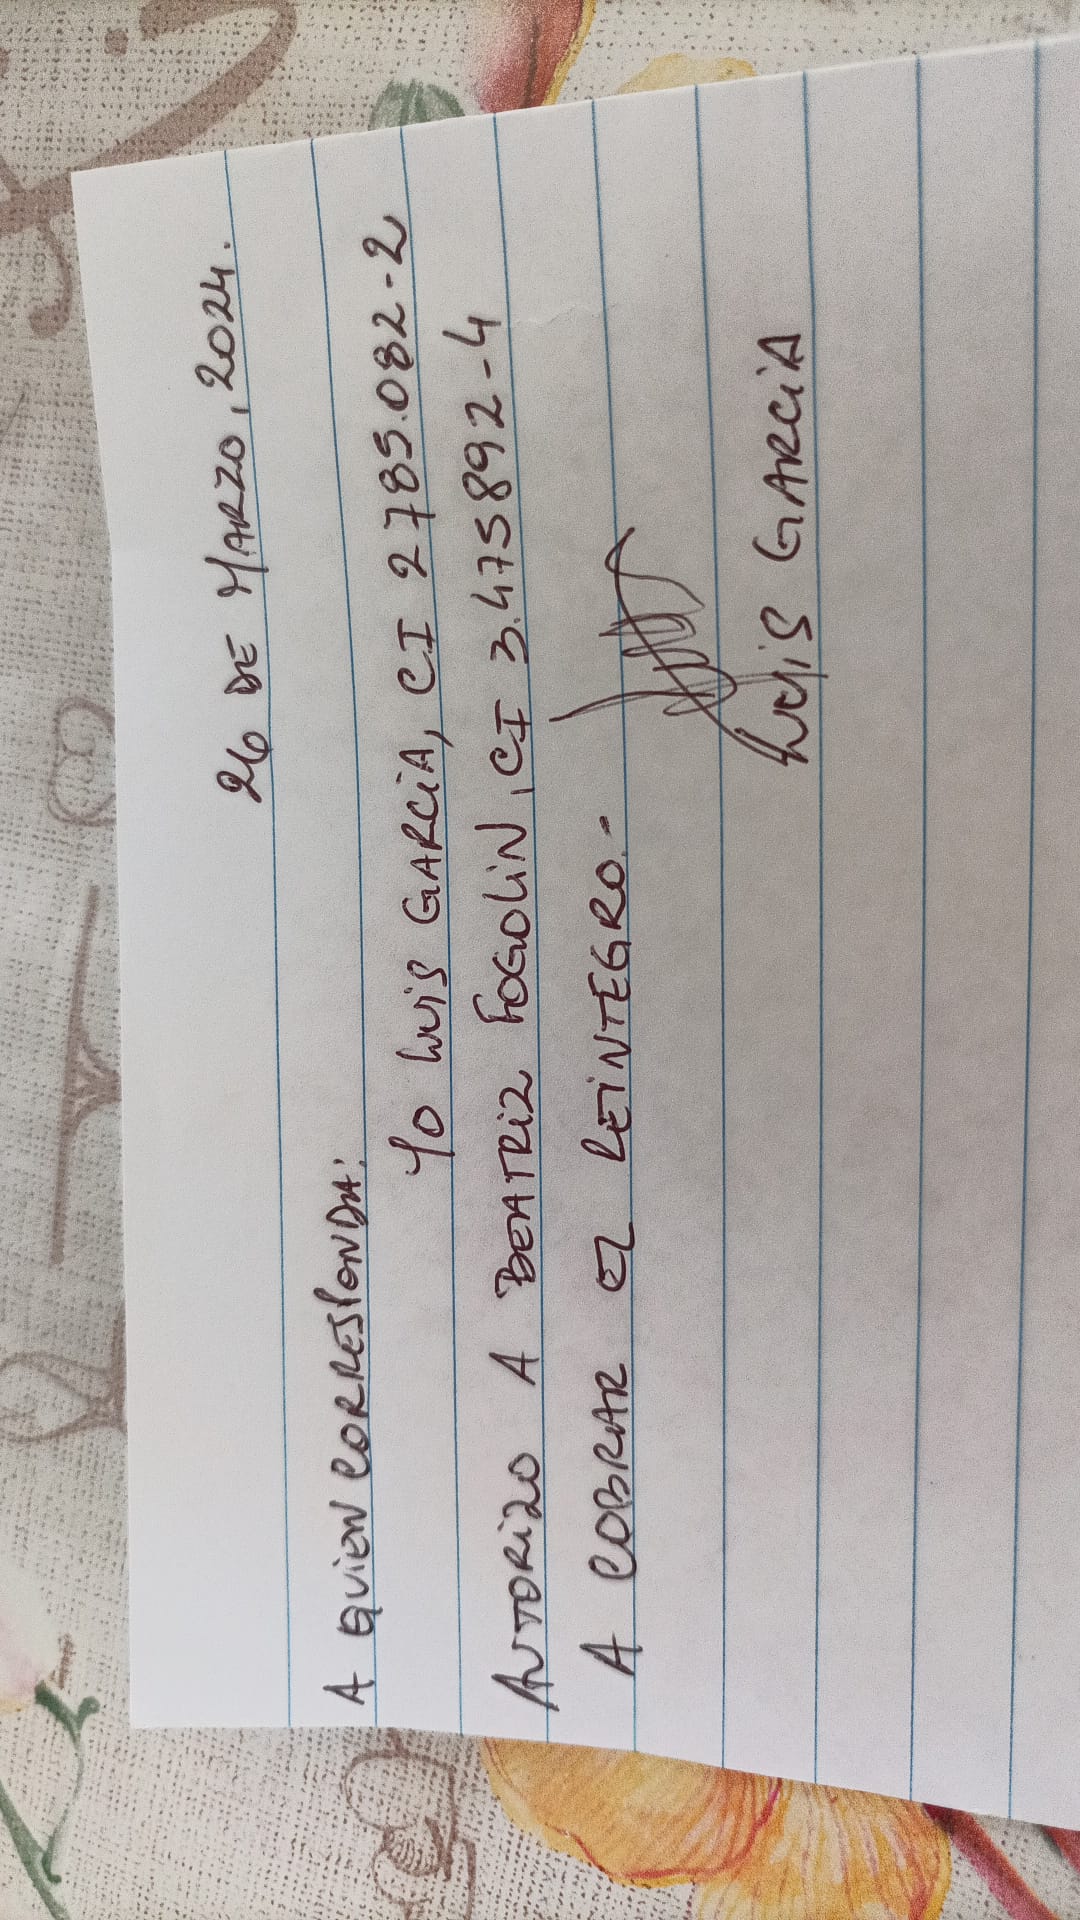 26 DE MARZO, 2024.
A QUIEN CORRESPONDA:
YO LUIS GARCIA, CI 2785.082-2
AUTORIZO A BEATRIZ FOGOLIN, CI 3.475892-4
A COBRAR EL REINTEGRO.-
LUIS GARCIA